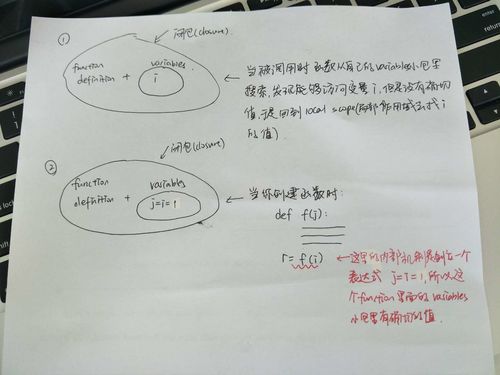 ①
闭包(closure)
function definition + variables
i
← 当被调用时 函数从自己的variables小包里
搜索,发现能够访问变量 i,但是没有确切的
值,于是回到local scope(局部作用域)去找 i
的值)
②
闭包(closure)
function definition + variables
j=i=1
← 当你创建函数时:
def f(j):
r= f(i)
← 这里的内部机制是创建一个
表达式 j=i=1,所以这
个function里面的variables
小包里有确切的值.